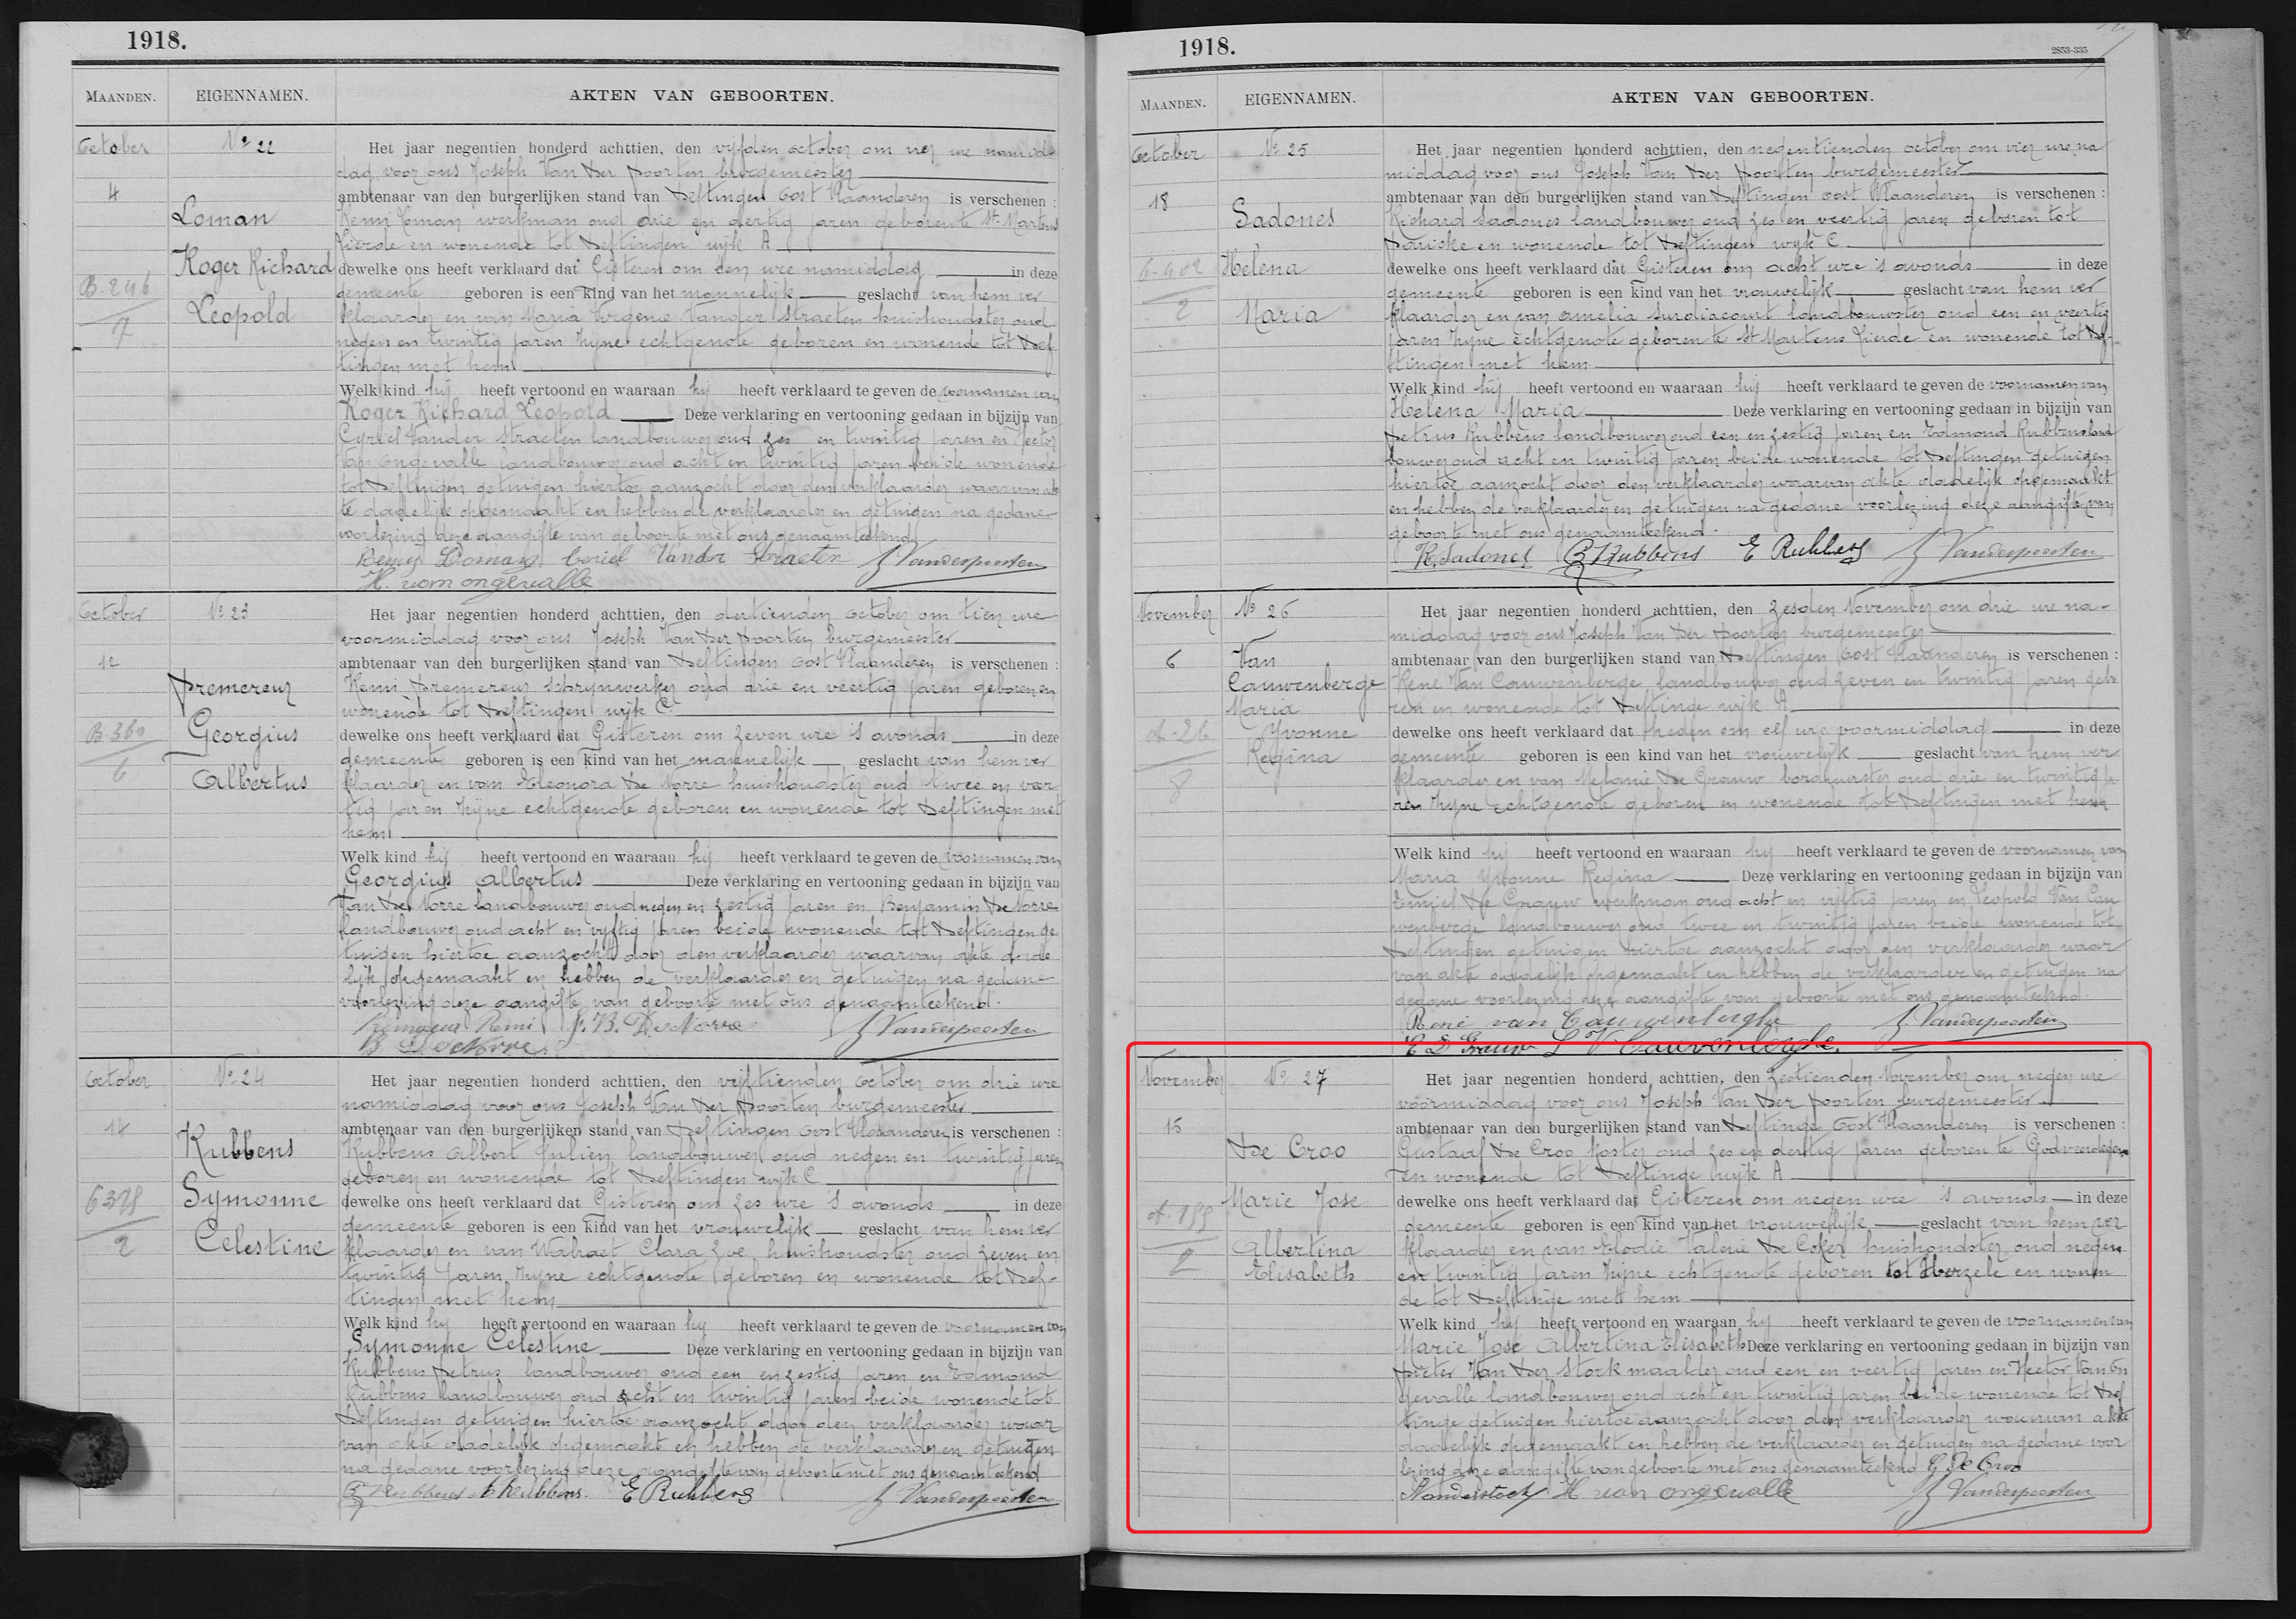 1918.
MAANDEN.
EIGENNAMEN.
AKTEN VAN GEBOORTEN.
October
Nº 22
4
Loman
Roger Richard
Leopold
B-246
7
Het jaar negentien honderd achttien, den vijfden october om vier ure namid-
dag voor ons Joseph Van Der Poorten burgemeester
ambtenaar van den burgerlijken stand van Deftingen Oost Vlaanderen is verschenen :
Remi Loman werkman oud drie en dertig jaren geboren te St. Martens
Lierde en wonende tot Deftingen wijk A
dewelke ons heeft verklaard dat Gisteren om een ure namiddag in deze
gemeente geboren is een kind van het mannelijk geslacht van hem ver
klaarder en van Maria Virginie Vander Straeten huishoudster oud
negen en twintig jaren zijne echtgenote geboren en wonende tot Def
tingen met hem
Welk kind hij heeft vertoond en waaraan hij heeft verklaard te geven de voornamen van
Roger Richard Leopold Deze verklaring en vertooning gedaan in bijzijn van
Cyriel Vander Straeten landbouwer oud zes en twintig jaren en Hector
Van Ongevalle landbouwer oud acht en twintig jaren beide wonende
tot Deftingen getuigen hiertoe aanzocht door den verklaarder waarvan ak
te dadelijk opgemaakt en hebben de verklaarder en getuigen na gedane
voorlezing deze aangifte van geboorte met ons genaamteekend.
Remy Loman Ceriel Vander Straeten J. Vanderpoorten
H. van ongevalle
October
Nº 23
12
Premereur
Georgius
Albertus
B-360
6
Het jaar negentien honderd achttien, den dertienden october om tien ure
voormiddag voor ons Joseph Van Der Poorten burgemeester
ambtenaar van den burgerlijken stand van Deftingen Oost Vlaanderen is verschenen :
Remi Premereur schrijnwerker oud drie en veertig jaren geboren en
wonende tot Deftingen wijk C
dewelke ons heeft verklaard dat Gisteren om zeven ure 's avonds in deze
gemeente geboren is een kind van het mannelijk geslacht van hem ver
klaarder en van Eleonora De Norre huishoudster oud twee en veer
tig jaren zijne echtgenote geboren en wonende tot Deftingen met
hem
Welk kind hij heeft vertoond en waaraan hij heeft verklaard te geven de voornamen van
Georgius Albertus Deze verklaring en vertooning gedaan in bijzijn van
Jan De Norre landbouwer oud negen en zestig jaren en Benjamin De Norre
landbouwer oud acht en vijftig jaren beide wonende tot Deftingen ge
tuigen hiertoe aanzocht door den verklaarder waarvan akte dade
lijk opgemaakt en hebben de verklaarder en getuigen na gedane
voorlezing deze aangifte van geboorte met ons genaamteekend.
Premereur Remi J. B. De Norre J. Vanderpoorten
B De Norre
October
Nº 24
14
Rubbens
Symonne
Celestine
2
Het jaar negentien honderd achttien, den vijftienden October om drie ure
namiddag voor ons Joseph Van Der Poorten burgemeester
ambtenaar van den burgerlijken stand van Deftingen Oost Vlaanderen is verschenen :
Rubbens Albert Julien landbouwer oud negen en twintig jaren
geboren en wonende tot Deftingen wijk C
dewelke ons heeft verklaard dat Gisteren om zes ure 's avonds in deze
gemeente geboren is een kind van het vrouwelijk geslacht van hem ver
klaarder en van Walraet Clara Zoe huishoudster oud zeven en
twintig jaren zijne echtgenote geboren en wonende tot Def-
tingen met hem
Welk kind hij heeft vertoond en waaraan hij heeft verklaard te geven de voornamen van
Symonne Celestine Deze verklaring en vertooning gedaan in bijzijn van
Rubbens Petrus landbouwer oud een en zestig jaren en Edmond
Rubbens landbouwer oud acht en twintig jaren beide wonende tot
Deftingen getuigen hiertoe aanzocht door den verklaarder waar
van akte dadelijk opgemaakt en hebben de verklaarder en getuigen
na gedane voorlezing deze aangifte van geboorte met ons genaamteekend
Rubbens A Rubbens. E Rubbens J. Vanderpoorten
1918.
2853-335
MAANDEN.
EIGENNAMEN.
AKTEN VAN GEBOORTEN.
October
Nº 25
18
Sadones
Helena
Maria
2
Het jaar negentien honderd achttien, den negentienden october om vier ure na
middag voor ons Joseph Van Der Poorten burgemeester
ambtenaar van den burgerlijken stand van Deftingen Oost Vlaanderen is verschenen :
Richard Sadones landbouwer oud zes en veertig jaren geboren tot
Paricke en wonende tot Deftingen wijk C
dewelke ons heeft verklaard dat Gisteren om acht ure 's avonds in deze
gemeente geboren is een kind van het vrouwelijk geslacht van hem ver
klaarder en van Amelia Surdiacourt landbouwster oud een en veertig
jaren zijne echtgenote geboren te St Martens Lierde en wonende tot Def-
tingen met hem
Welk kind hij heeft vertoond en waaraan hij heeft verklaard te geven de voornamen van
Helena Maria Deze verklaring en vertooning gedaan in bijzijn van
Petrus Rubbens landbouwer oud een en zestig jaren en Edmond Rubbens land
bouwer oud acht en twintig jaren beide wonende tot Deftingen getuigen
hiertoe aanzocht door den verklaarder waarvan akte dadelijk opgemaakt
en hebben de verklaarder en getuigen na gedane voorlezing deze aangifte van
geboorte met ons genaamteekend.
R. Sadones Rubbens E Rubbens J. Vanderpoorten
November
Nº 26
6
Van
Cauwenberge
Maria
Yvonne
Regina
A-26
8
Het jaar negentien honderd achttien, den zesden November om drie ure na-
middag voor ons Joseph Van Der Poorten burgemeester
ambtenaar van den burgerlijken stand van Deftingen Oost Vlaanderen is verschenen :
René Van Cauwenberge landbouwer oud zeven en twintig jaren gebo
ren en wonende tot Deftinge wijk A
dewelke ons heeft verklaard dat heden om elf ure voormiddag in deze
gemeente geboren is een kind van het vrouwelijk geslacht van hem ver
klaarder en van Melanie De Grauw borduurster oud drie en twintig ja
ren zijne echtgenote geboren en wonende tot Deftingen met hem
Welk kind hij heeft vertoond en waaraan hij heeft verklaard te geven de voornamen van
Maria Yvonne Regina Deze verklaring en vertooning gedaan in bijzijn van
Emiel De Grauw werkman oud acht en vijftig jaren en Leopold Van Cau
wenberge landbouwer oud twee en twintig jaren beide wonende tot
Deftingen getuigen hiertoe aanzocht door den verklaarder waar
van akte dadelijk opgemaakt en hebben de verklaarder en getuigen na
gedane voorlezing deze aangifte van geboorte met ons genaamteekend.
René van Cauwenberghe J. Vanderpoorten
E D Grauw L V Cauwenberghe.
November
Nº 27
15
De Croo
Marie Jose
Albertina
Elisabeth
2
Het jaar negentien honderd achttien, den zestienden November om negen ure
voormiddag voor ons Joseph Van Der Poorten burgemeester
ambtenaar van den burgerlijken stand van Deftinge Oost Vlaanderen is verschenen :
Gustaaf De Croo koster oud zes en dertig jaren geboren te Godveerdegem
en wonende tot Deftinge wijk A
dewelke ons heeft verklaard dat Gisteren om negen ure 's avonds in deze
gemeente geboren is een kind van het vrouwelijk geslacht van hem ver
klaarder en van Elodie Valerie De Coker huishoudster oud negen
en twintig jaren zijne echtgenote geboren tot Herzele en wonen
de tot Deftinge met hem
Welk kind hij heeft vertoond en waaraan hij heeft verklaard te geven de voornamen van
Marie Jose Albertina Elisabeth Deze verklaring en vertooning gedaan in bijzijn van
Pieter Van Der Stock maalder oud een en veertig jaren en Hector Van On
gevalle landbouwer oud acht en twintig jaren beide wonende tot Def
tinge getuigen hiertoe aanzocht door den verklaarder waarvan akte
dadelijk opgemaakt en hebben de verklaarder en getuigen na gedane voor
lezing deze aangifte van geboorte met ons genaamteekend G De Croo
P. Vanderstock H van ongevalle J. Vanderpoorten